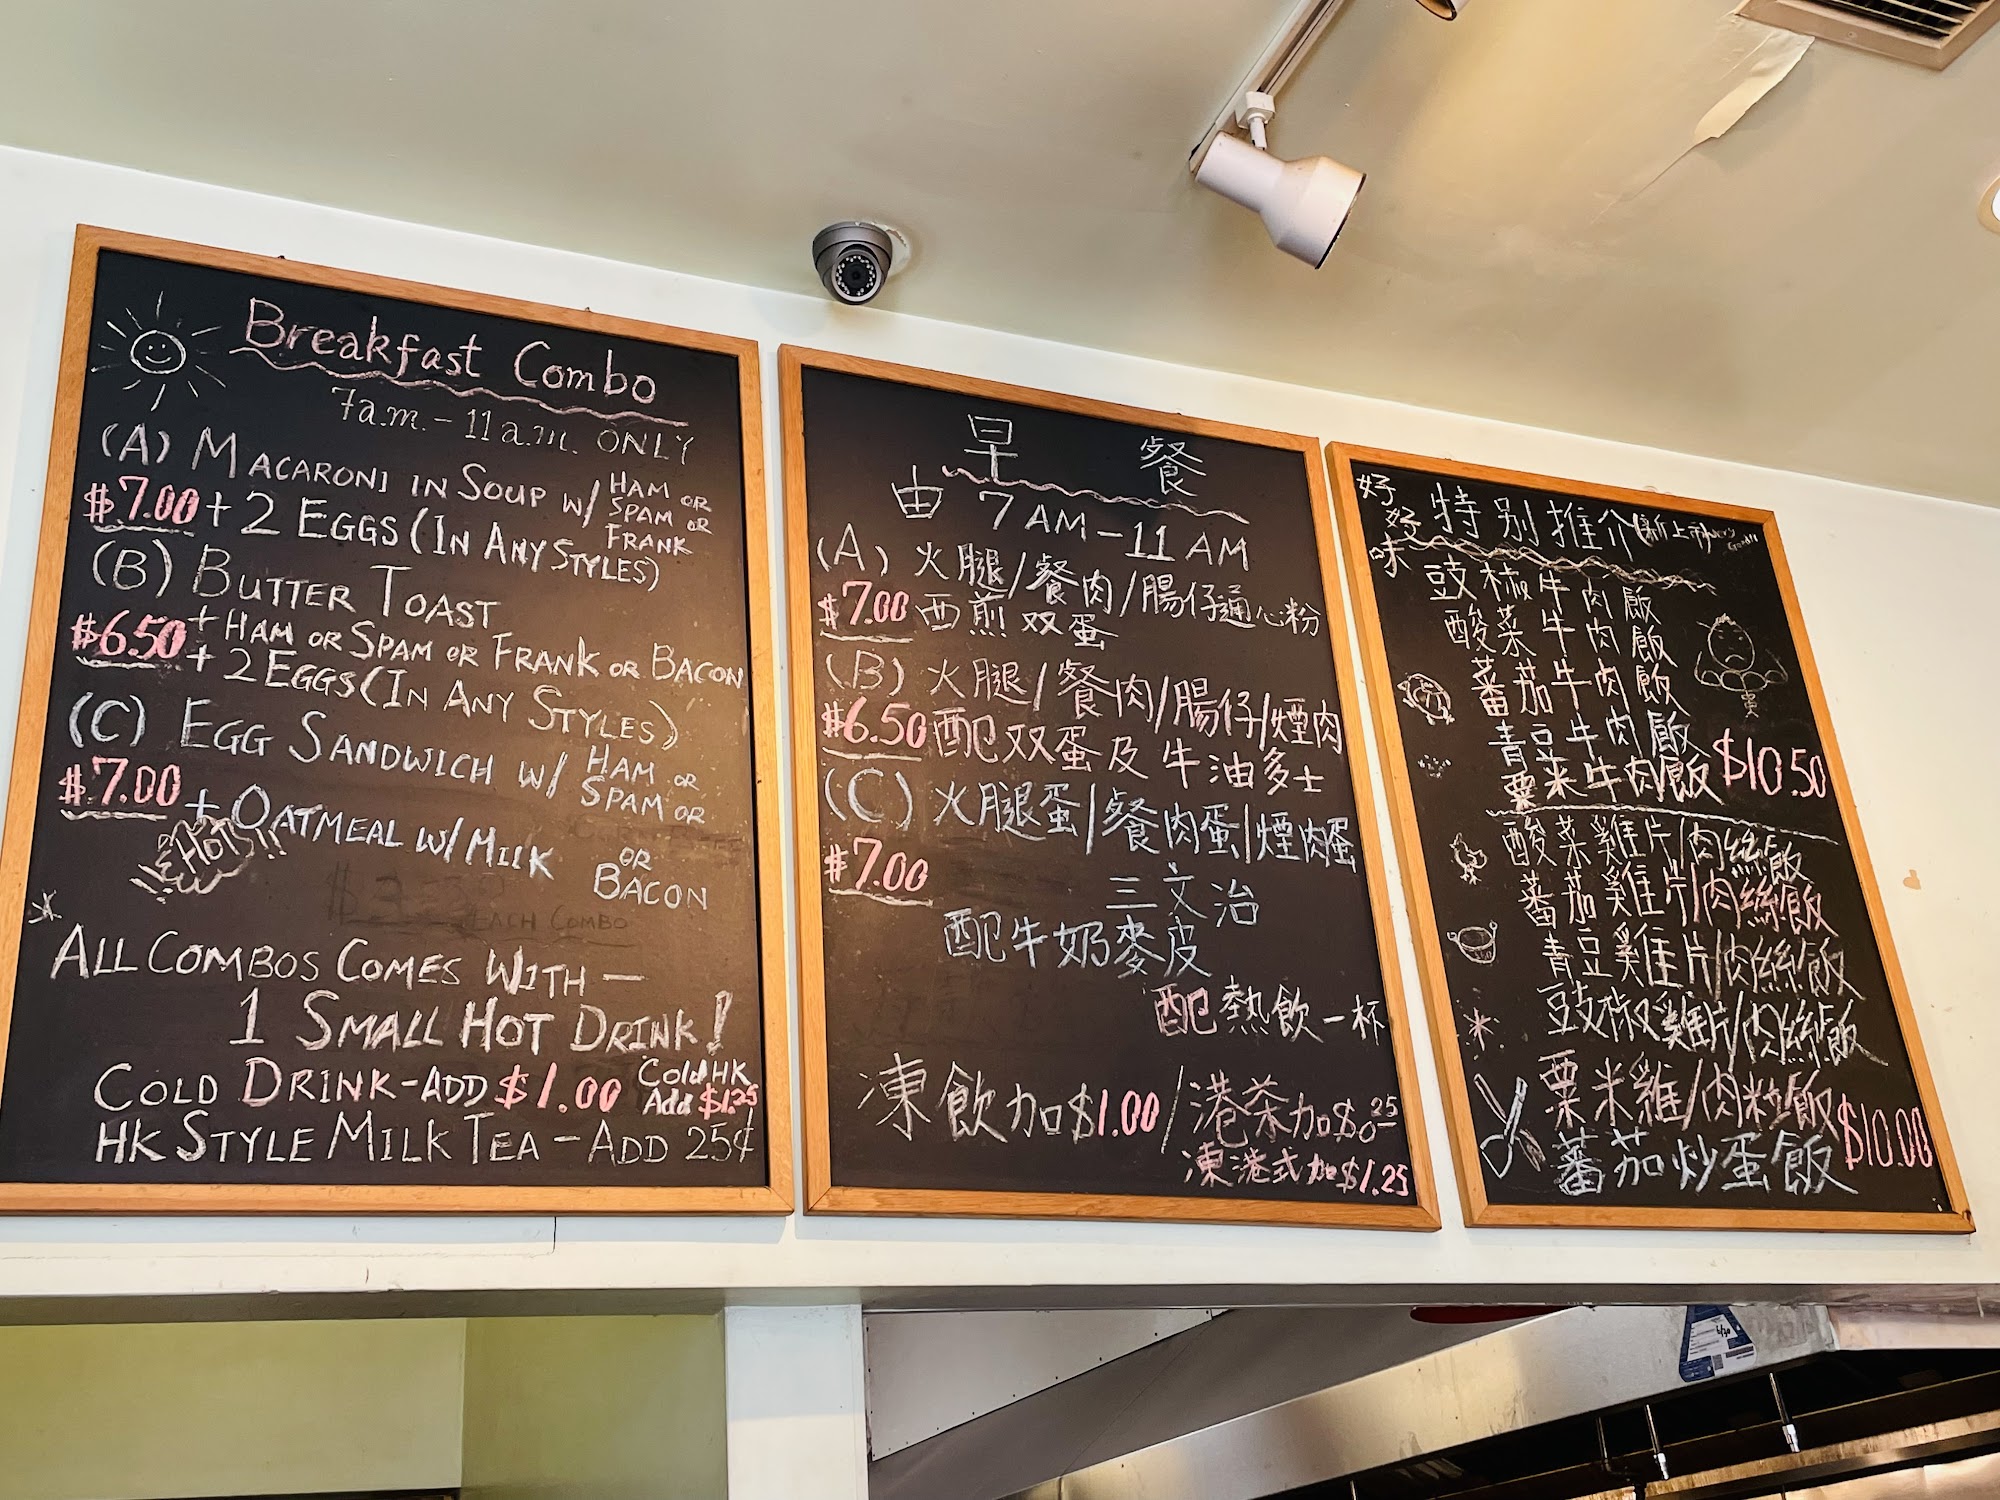 Breakfast Combo
7a.m. - 11a.m. ONLY
(A) MACARONI IN SOUP W/ HAM OR
SPAM OR
FRANK
$7.00 + 2 EGGS (IN ANY STYLES)
(B) BUTTER TOAST
$6.50 + HAM OR SPAM OR FRANK OR BACON
+ 2 EGGS (IN ANY STYLES)
(C) EGG SANDWICH W/ HAM OR
SPAM OR
OR
BACON
$7.00 + OATMEAL W/ MILK
HOT!!
EACH COMBO
* ALL COMBOS COMES WITH —
1 SMALL HOT DRINK!
COLD DRINK - ADD $1.00 Cold HK
Add $1.25
HK STYLE MILK TEA - ADD 25¢
早 餐
由 7 AM - 11 AM
(A) 火腿/餐肉/腸仔通心粉
$7.00 西煎双蛋
(B) 火腿/餐肉/腸仔/煙肉
$6.50 配双蛋及牛油多士
(C) 火腿蛋/餐肉蛋/煙肉蛋
$7.00
三文治
配牛奶麥皮
配熱飲一杯
凍飲加$1.00/港茶加$0.25
凍港式加$1.25
好好味
特别推介(新上市)
豉椒牛肉飯
酸菜牛肉飯
蕃茄牛肉飯
青豆牛肉飯
粟米牛肉飯 $10.50
蛋
酸菜雞片/肉絲飯
蕃茄雞片/肉絲飯
青豆雞片/肉絲飯
豉椒雞片/肉絲飯
粟米雞/肉粒飯
蕃茄炒蛋飯 $10.00